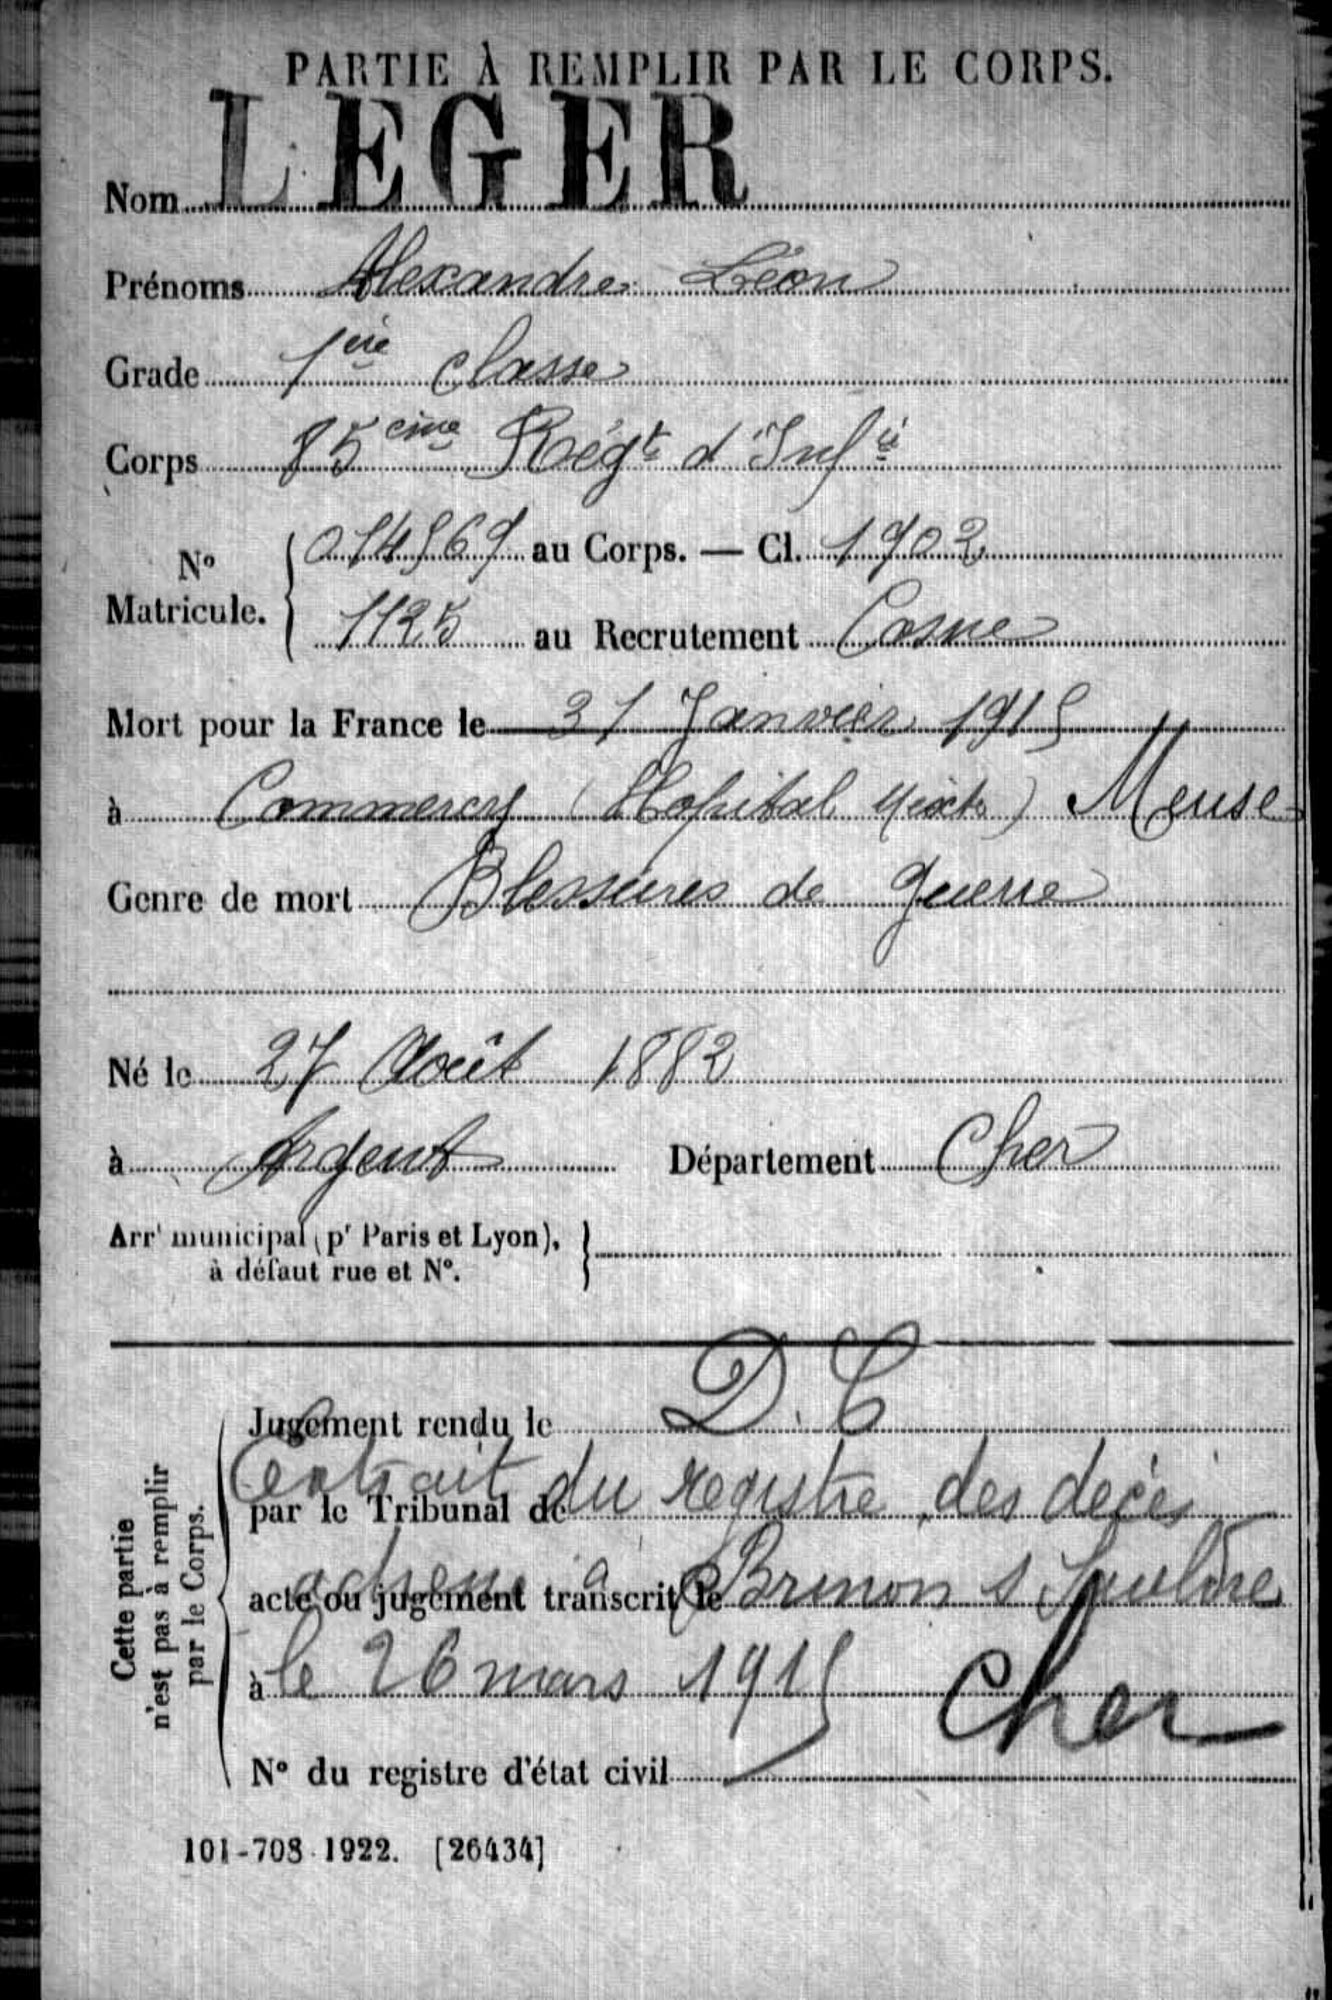 PARTIE À REMPLIR PAR LE CORPS.
Nom LEGER
Prénoms Alexandre Léon
Grade 1ère classe
Corps 85ème Régt d'Infie
No Matricule. 014969 au Corps. — Cl. 1902
1125 au Recrutement Cosne
Mort pour la France le 31 Janvier 1915
à Commercy (Hopital Mixte) Meuse
Genre de mort Blessures de Guerre
Né le 27 Août 1882
à Argent Département Cher
Arrt municipal (pr Paris et Lyon),
à défaut rue et No.
Cette partie
n'est pas à remplir
par le Corps.
Jugement rendu le D.C
par le Tribunal de
Extrait du registre des décès
acte ou jugement transcrit le
adressé à Brinon s Sauldre
à le 26 mars 1915 Cher
No du registre d'état civil
101-708-1922. [26434]